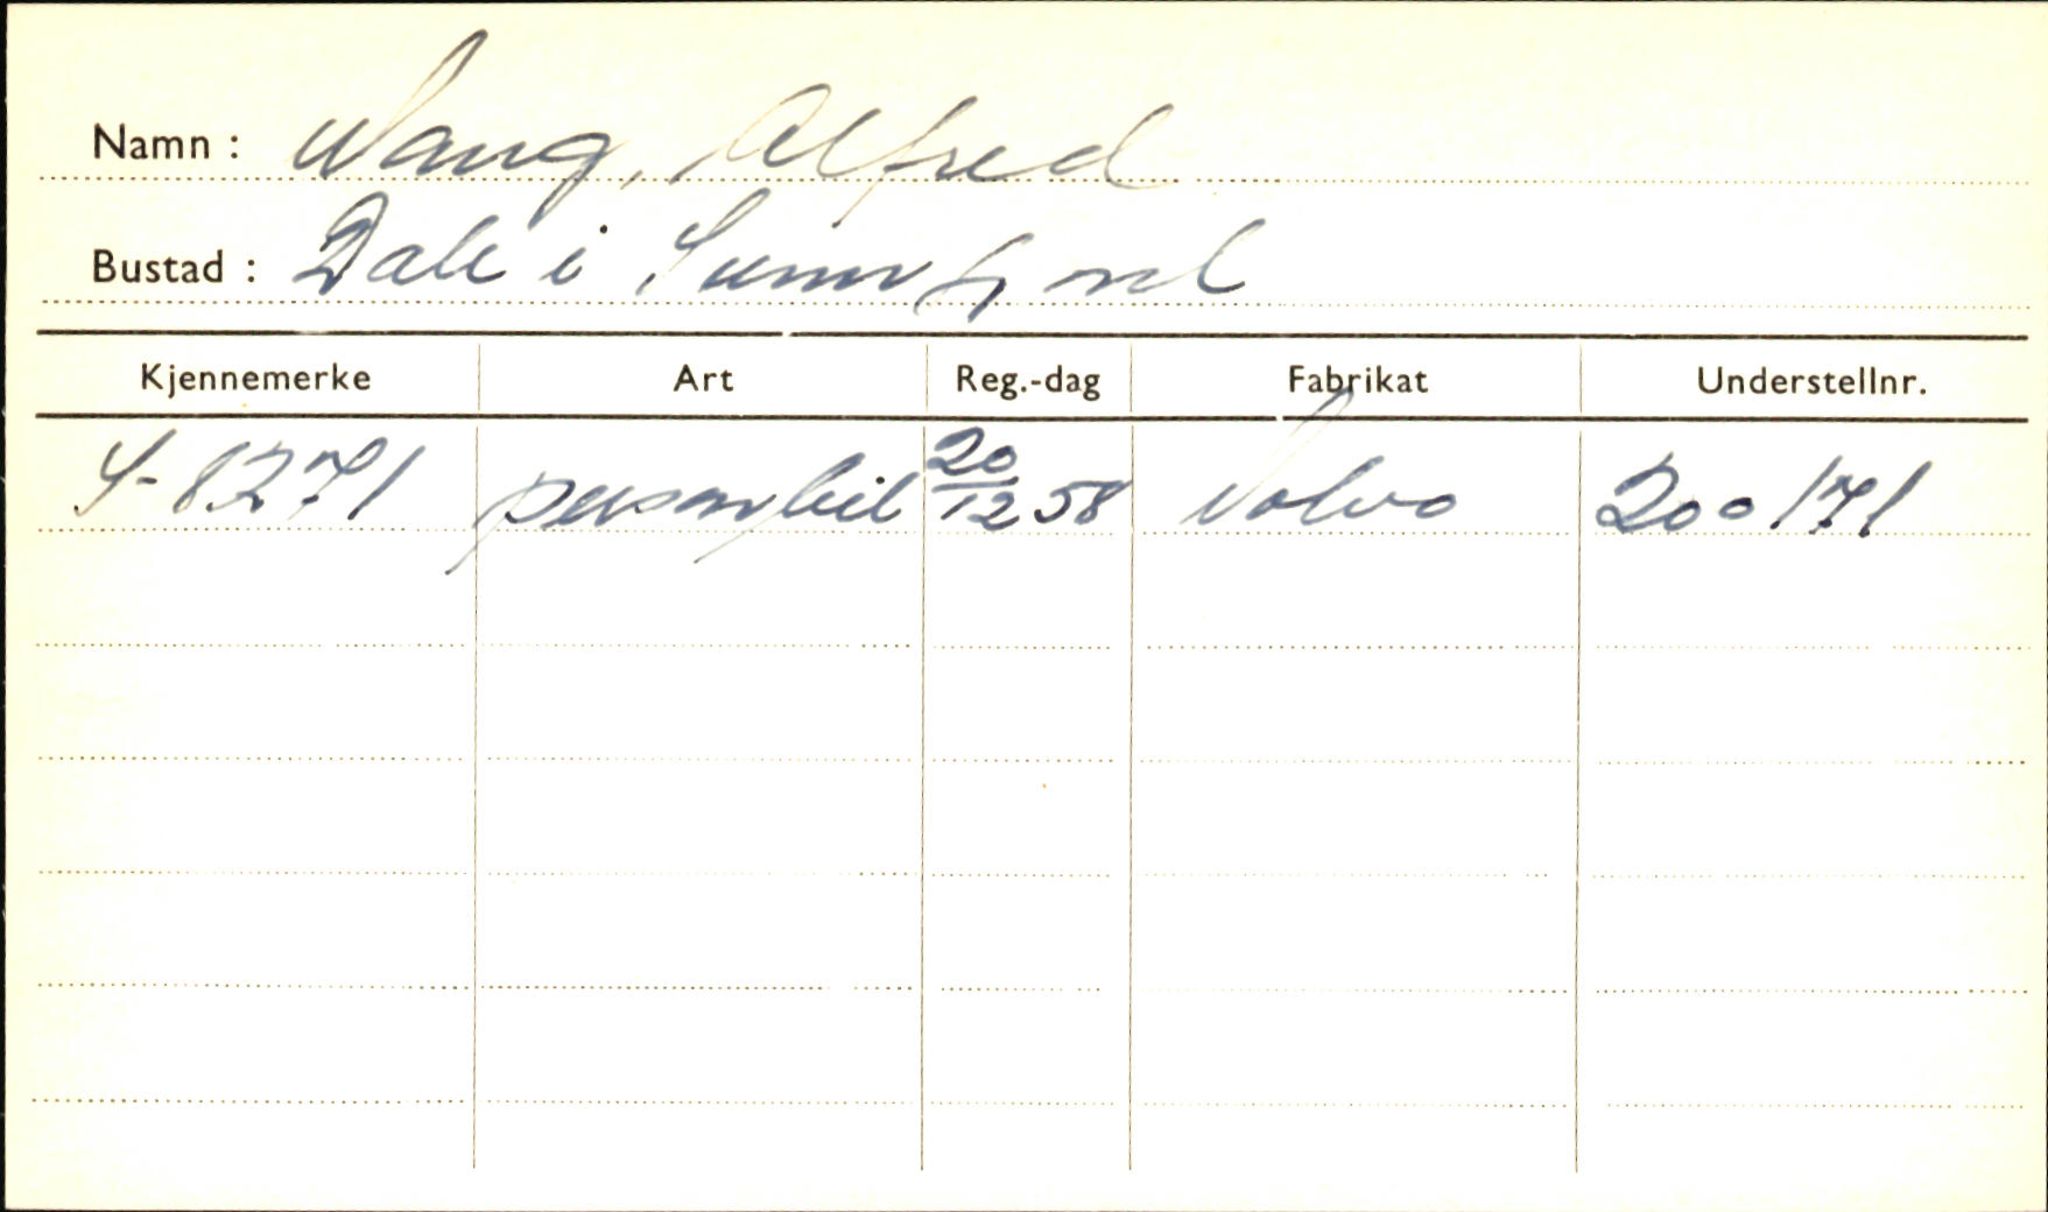 Namn : Wang, Alfred
Bustad : Dale i Sunnfjord
Kjennemerke Art Reg.-dag Fabrikat Understellnr.
S-8271 personbil 20/12 58 Volvo 200171